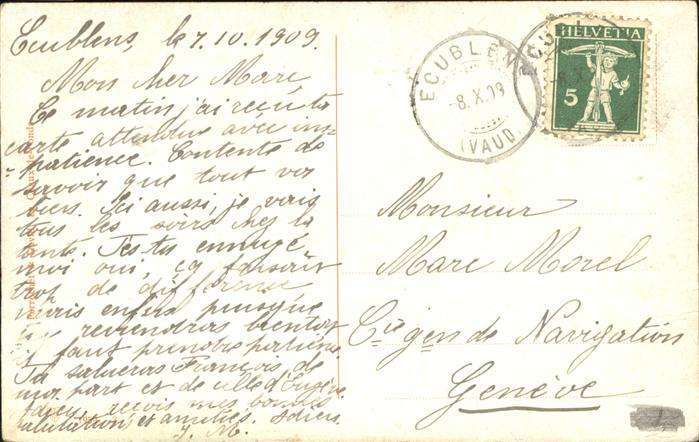 Ecublens, le 7.10.1909.
Mon cher Marc,
Ce matin j'ai reçu ta
carte attendue avec im-
patience. Contente de
savoir que tout va
bien. Ici aussi, je vais
tous les soirs chez la
tante. T'es-tu ennuyé
moi oui, ça faisait
trop de différence
mais enfin puisque
tu reviendras bientôt
il faut prendre patience.
Tu salueras François de
ma part et de celle d'Eugène
reçois mes bonnes
salutations et amitiés. Adieu.
J. M.
ECUBLENS
-8.X.09
(VAUD)
HELVETIA
5
Monsieur
Marc Morel
Cie gen de Navigation
Genève